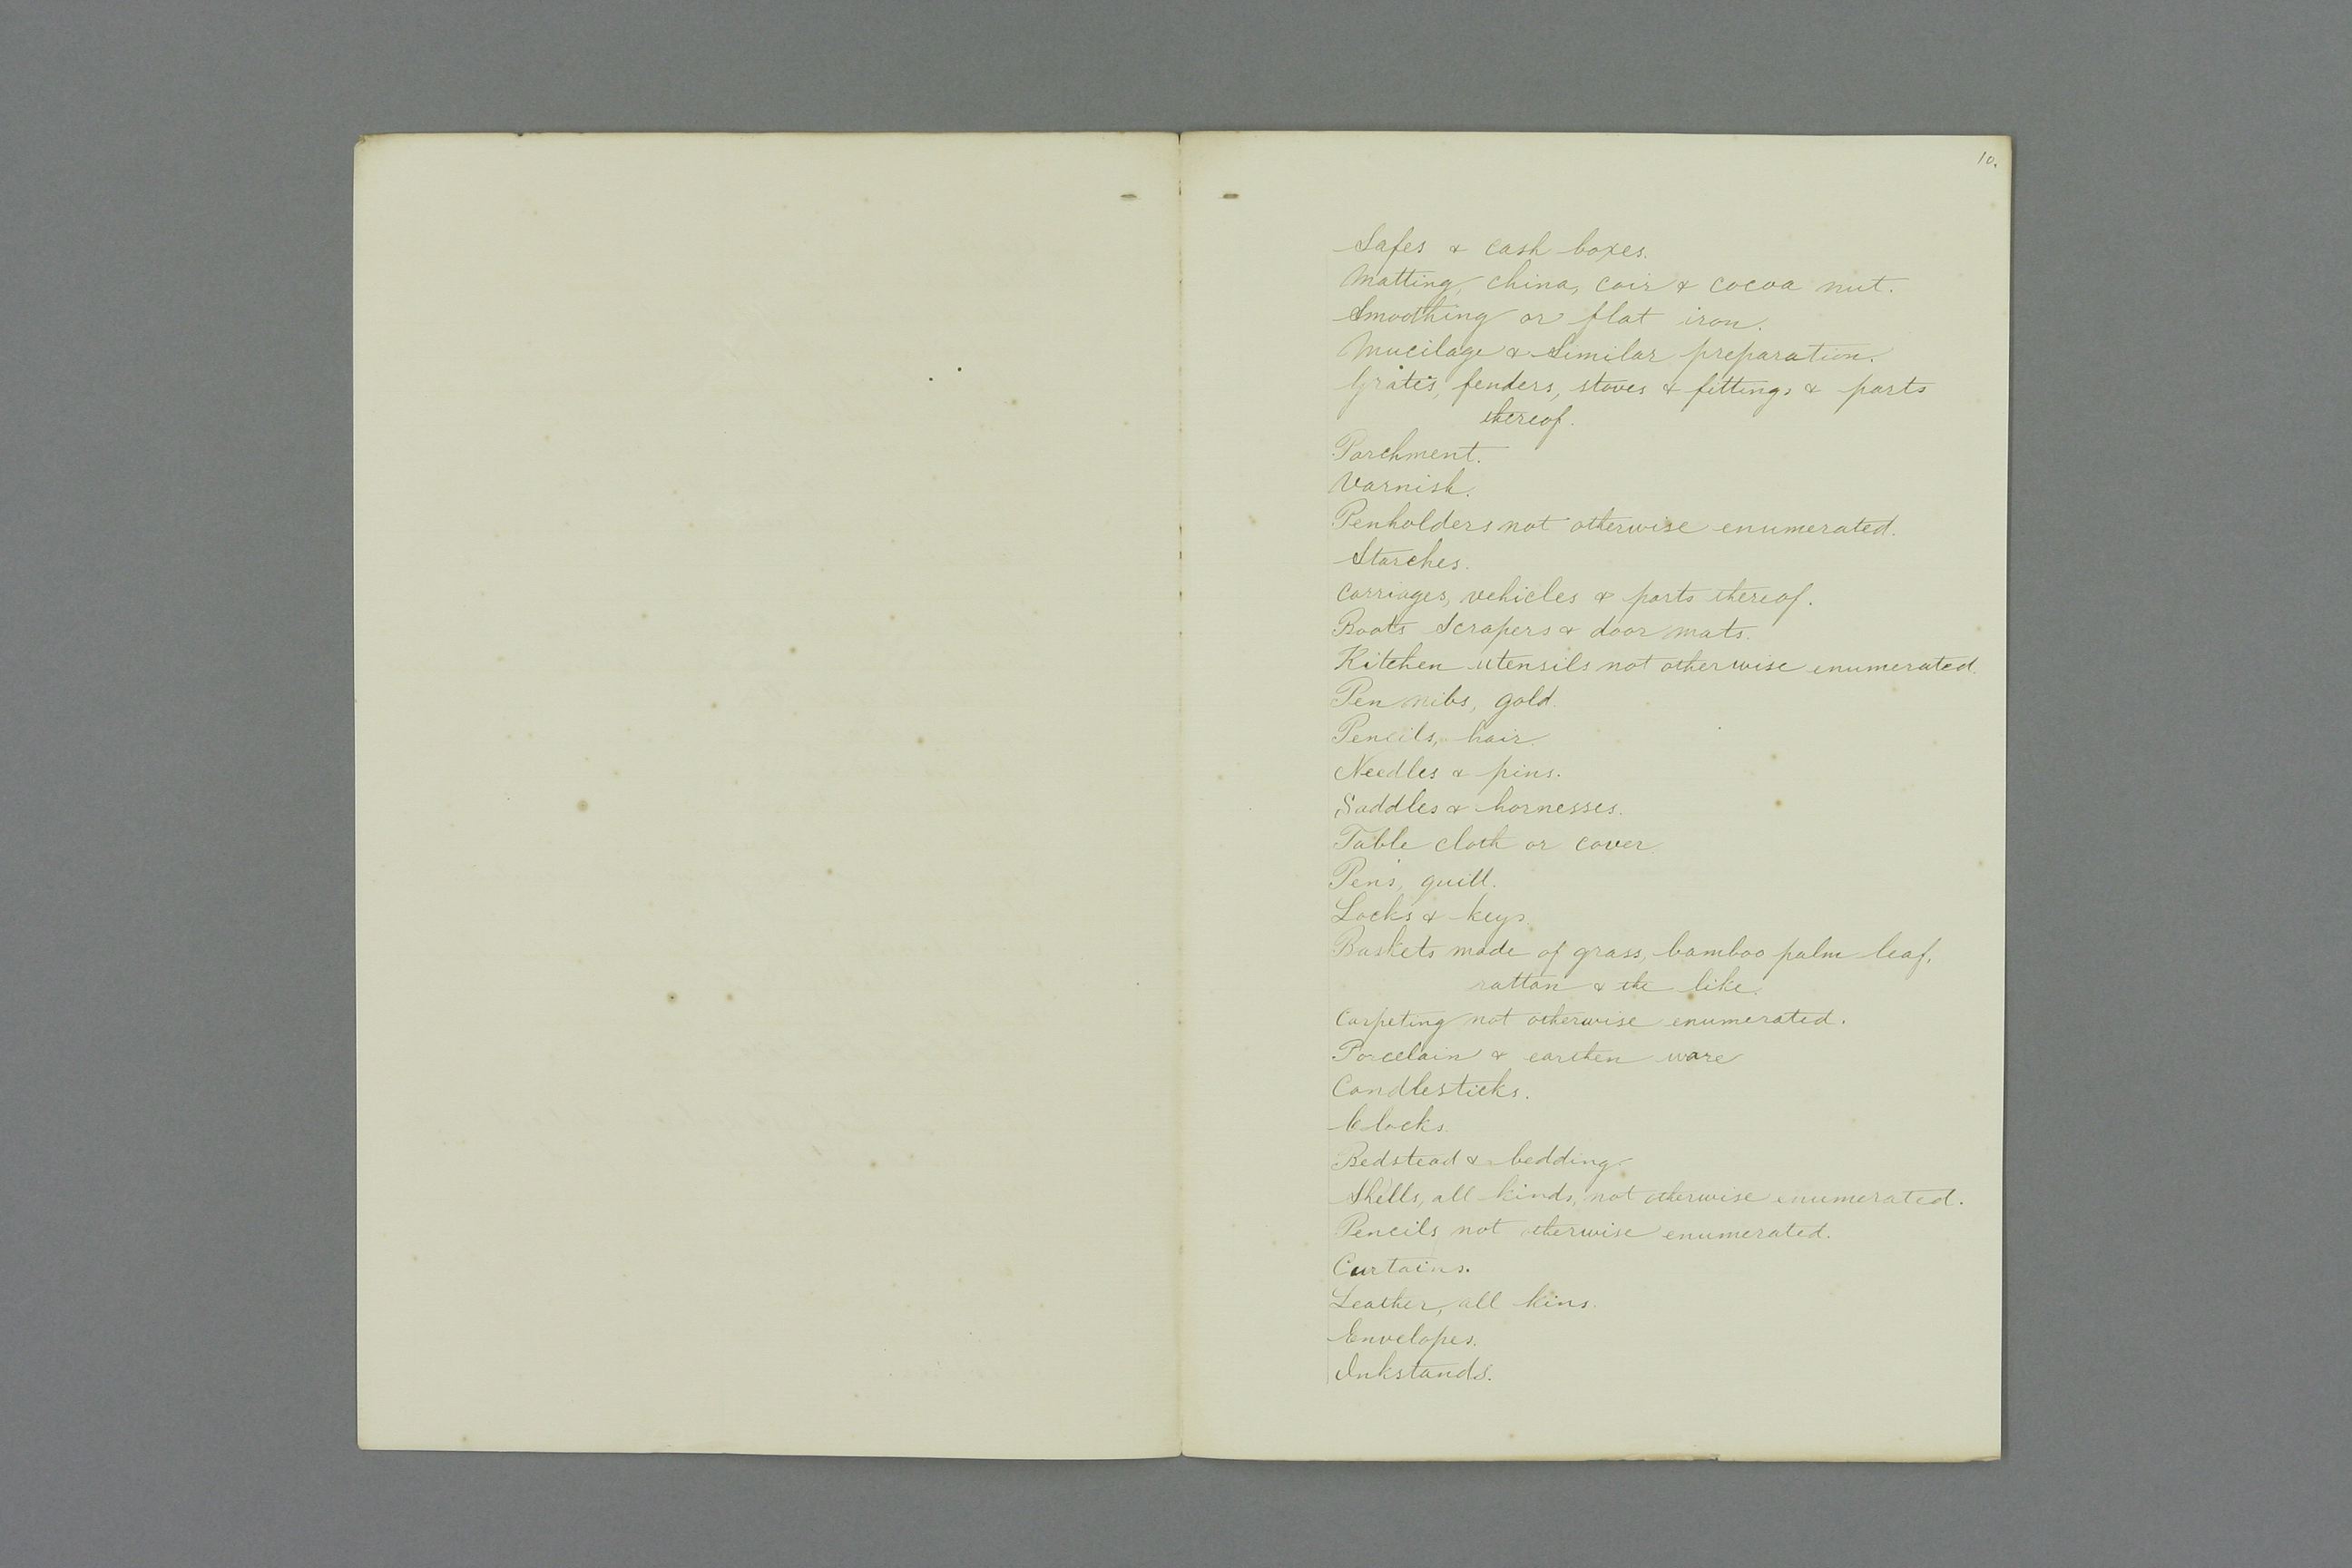 10.
Safes & cash boxes.
Matting, china, coir & cocoa nut.
Smoothing or flat iron.
Mucilage & similar preparation.
Grates, fenders, stoves & fittings & parts
thereof.
Parchment.
Varnish.
Penholders not otherwise enumerated.
Starches.
Carriages, vehicles & parts thereof.
Boots Scrapers & door mats.
Kitchen utensils not otherwise enumerated.
Pen nibs, gold.
Pencils, hair.
Needles & pins.
Saddles & harnesses.
Table cloth or cover.
Pens, quill.
Locks & keys.
Baskets made of grass, bamboo palm leaf,
rattan & the like.
Carpeting not otherwise enumerated.
Porcelain & earthen ware
Candlesticks.
Clocks.
Bedstead & bedding.
Shells, all kinds, not otherwise enumerated.
Pencils not otherwise enumerated.
Curtains.
Leather, all kins.
Envelopes.
Inkstands.